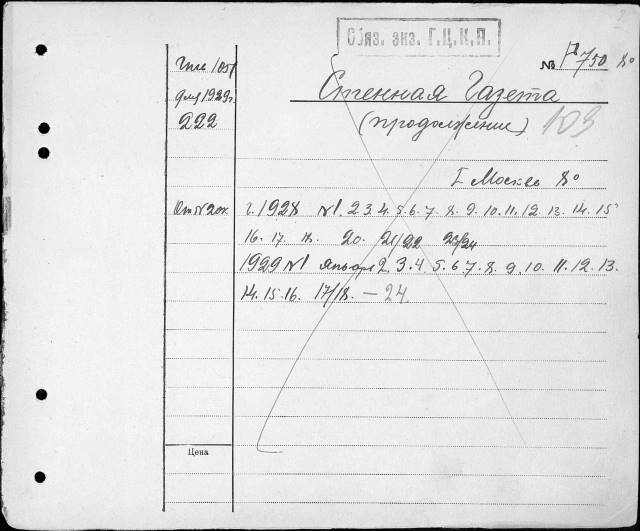 Обяз. экз. Г.Ц.К.П.
№ 750 8°
Стенная Газета
(продолжение) 103
222
Москва 8°
г. 1928 №1. 2. 3. 4. 5. 6. 7. 8. 9. 10. 11. 12. 13. 14. 15
16. 17. 18. 20. 21/22 23/24
1929 №1 январь 2. 3. 4. 5. 6. 7. 8. 9. 10. 11. 12. 13.
14. 15. 16. 17/18. — 24.
Цена